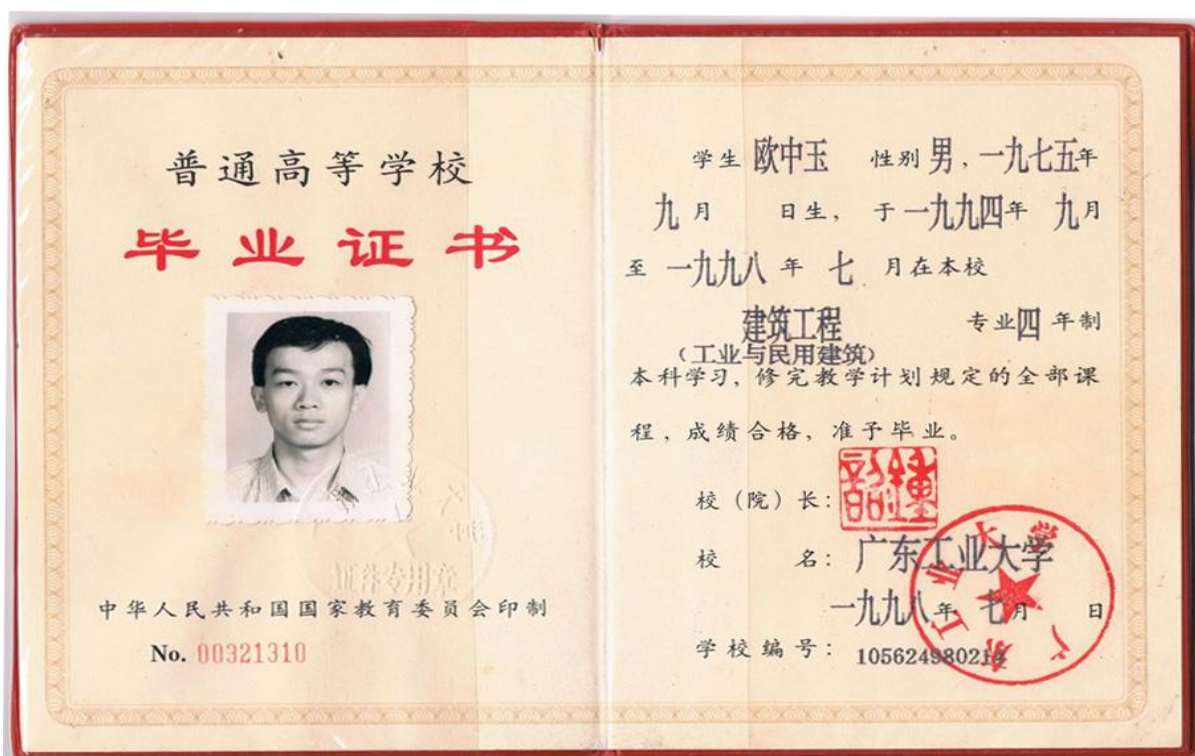 普通高等学校
毕业证书
中华人民共和国国家教育委员会印制
No. 00321310
学生 欧中玉 性别 男，一九七五年
九月 日生，于一九九四年 九月
至 一九九八 年 七 月在本校
建筑工程 专业四 年制
（工业与民用建筑）
本科学习，修完教学计划规定的全部课
程，成绩合格，准予毕业。
校（院）长：
校 名：广东工业大学
一九九八年 七月 日
学校编号：105624980214
广东工业大学